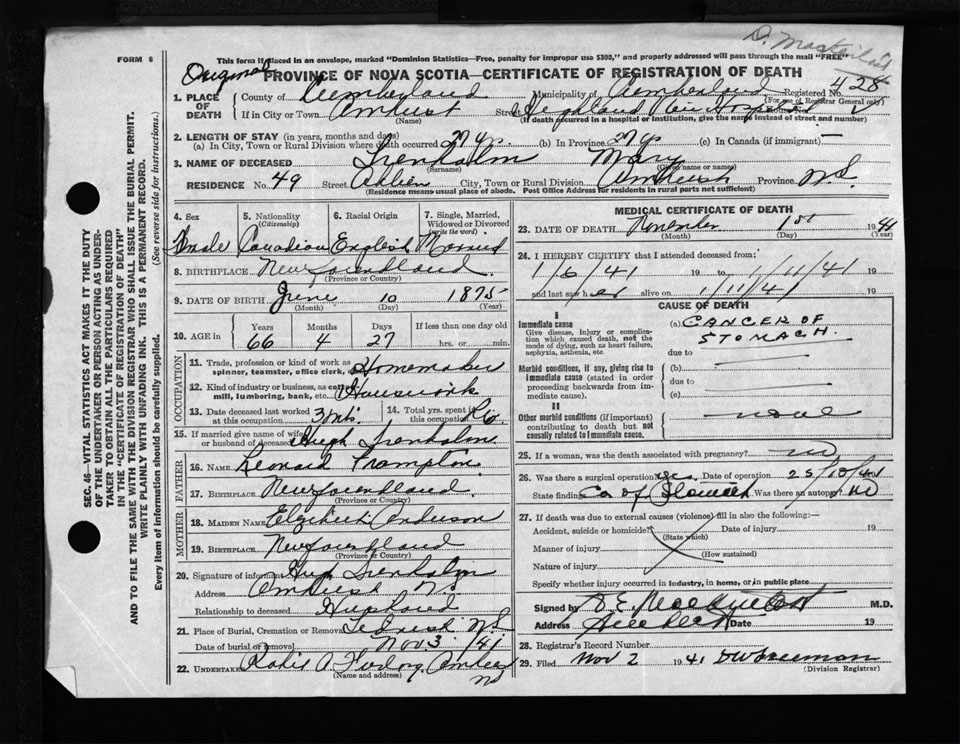 FORM 6
This form if placed in an envelope, marked "Dominion Statistics—Free, penalty for improper use $300," and properly addressed will pass through the mail "FREE"
Original
PROVINCE OF NOVA SCOTIA—CERTIFICATE OF REGISTRATION OF DEATH
1. PLACE OF DEATH
County of Cumberland Municipality of Cumberland Registered No. 428
(For use of Registrar General only)
If in City or Town Amherst St. Highland View Hospital
(Name) (If death occurred in a hospital or institution, give the name instead of street and number)
2. LENGTH OF STAY (in years, months and days)
(a) In City, Town or Rural Division where death occurred (b) In Province (c) In Canada (if immigrant) —
3. NAME OF DECEASED Trenholm Mary
(Surname) (Given name or names)
RESIDENCE No. 49 Street Albion City, Town or Rural Division Amherst Province N.S.
(Residence means usual place of abode. Post Office Address for residents in rural parts not sufficient)
SEC. 46—VITAL STATISTICS ACT MAKES IT THE DUTY
OF THE UNDERTAKER OR PERSON ACTING AS UNDER-
TAKER TO OBTAIN ALL THE PARTICULARS REQUIRED
IN THE "CERTIFICATE OF REGISTRATION OF DEATH"
AND TO FILE THE SAME WITH THE DIVISION REGISTRAR WHO SHALL ISSUE THE BURIAL PERMIT.
WRITE PLAINLY WITH UNFADING INK. THIS IS A PERMANENT RECORD.
Every item of information should be carefully supplied. (See reverse side for instructions.)
4. Sex 5. Nationality (Citizenship) 6. Racial Origin 7. Single, Married, Widowed or Divorced (write the word)
Female Canadian English Married
8. BIRTHPLACE Newfoundland
(Province or Country)
9. DATE OF BIRTH June 10 1875
(Month) (Day) (Year)
10. AGE in Years Months Days If less than one day old
66 4 27 hrs. or min.
OCCUPATION
11. Trade, profession or kind of work as spinner, teamster, office clerk, Homemaker
12. Kind of industry or business, as mill, lumbering, bank, etc. Housework
13. Date deceased last worked at this occupation 3 mts. 14. Total yrs. spent in this occupation Life
15. If married give name of wife or husband of deceased Hugh Trenholm
FATHER
16. NAME Leonard Frampton
17. BIRTHPLACE Newfoundland
(Province or Country)
MOTHER
18. MAIDEN NAME Elizabeth Anderson
19. BIRTHPLACE Newfoundland
(Province or Country)
20. Signature of informant Hugh Trenholm
Address Amherst N.S.
Relationship to deceased Husband
21. Place of Burial, Cremation or Removal N.S.
Date of burial or removal Nov. 3 /41
22. Undertaker Amherst
(Name and address) NS
MEDICAL CERTIFICATE OF DEATH
23. DATE OF DEATH November 1st 1941
(Month) (Day) (Year)
24. I HEREBY CERTIFY that I attended deceased from:
1/6/41 19 to 1/11/41 19
and last saw her alive on 1/11/41 19
CAUSE OF DEATH
I
Immediate cause
Give disease, injury or complication which caused death, not the mode of dying, such as heart failure, asphyxia, asthenia, etc
(a) CANCER OF STOMACH.
due to
Morbid conditions, if any, giving rise to immediate cause (stated in order proceeding backwards from immediate cause).
(b)
due to
(c)
II
Other morbid conditions (if important) contributing to death but not causally related to immediate cause.
none
25. If a woman, was the death associated with pregnancy? no
26. Was there a surgical operation yes Date of operation 25/10/41
State finding Ca of Stomach Was there an autopsy? no
27. If death was due to external causes (violence) fill in also the following:—
Accident, suicide or homicide? Date of injury 19
(State which)
Manner of injury
(How sustained)
Nature of injury
Specify whether injury occurred in industry, in home, or in public place
Signed by M.D.
Address Amherst Date 19
28. Registrar's Record Number
29. Filed Nov 2 1941
(Division Registrar)